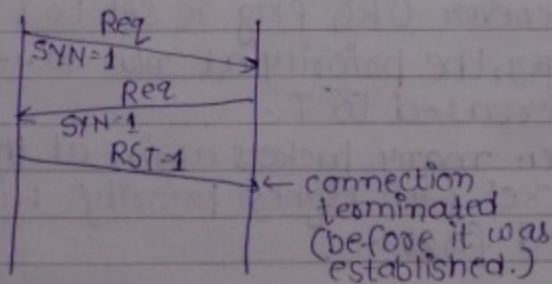 Req
SYN=1
Req
SYN=1
RST=1
connection
terminated
(before it was
established.)